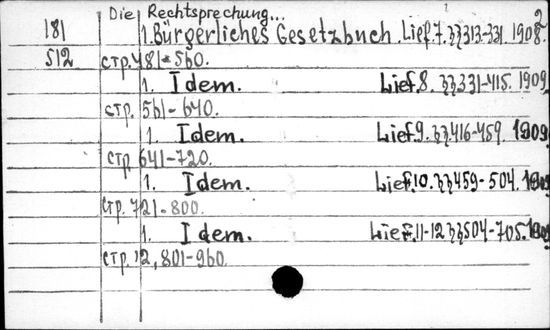 Die Rechtsprechung...
2
181 1. Bürgerliches Gesetzbuch. Lief. 7. §§313-331. 1908.
512 стр. 481-560.
1. Idem. Lief. 8. §§331-415. 1909
стр. 561-640.
1. Idem. Lief. 9. §§416-459. 1909.
стр. 641-720.
1. Idem. Lief. 10. §§459-504. 1909
стр. 721-800.
1. Idem. Lief. 11-12 §§504-705. 1909
стр. 12, 801-960.